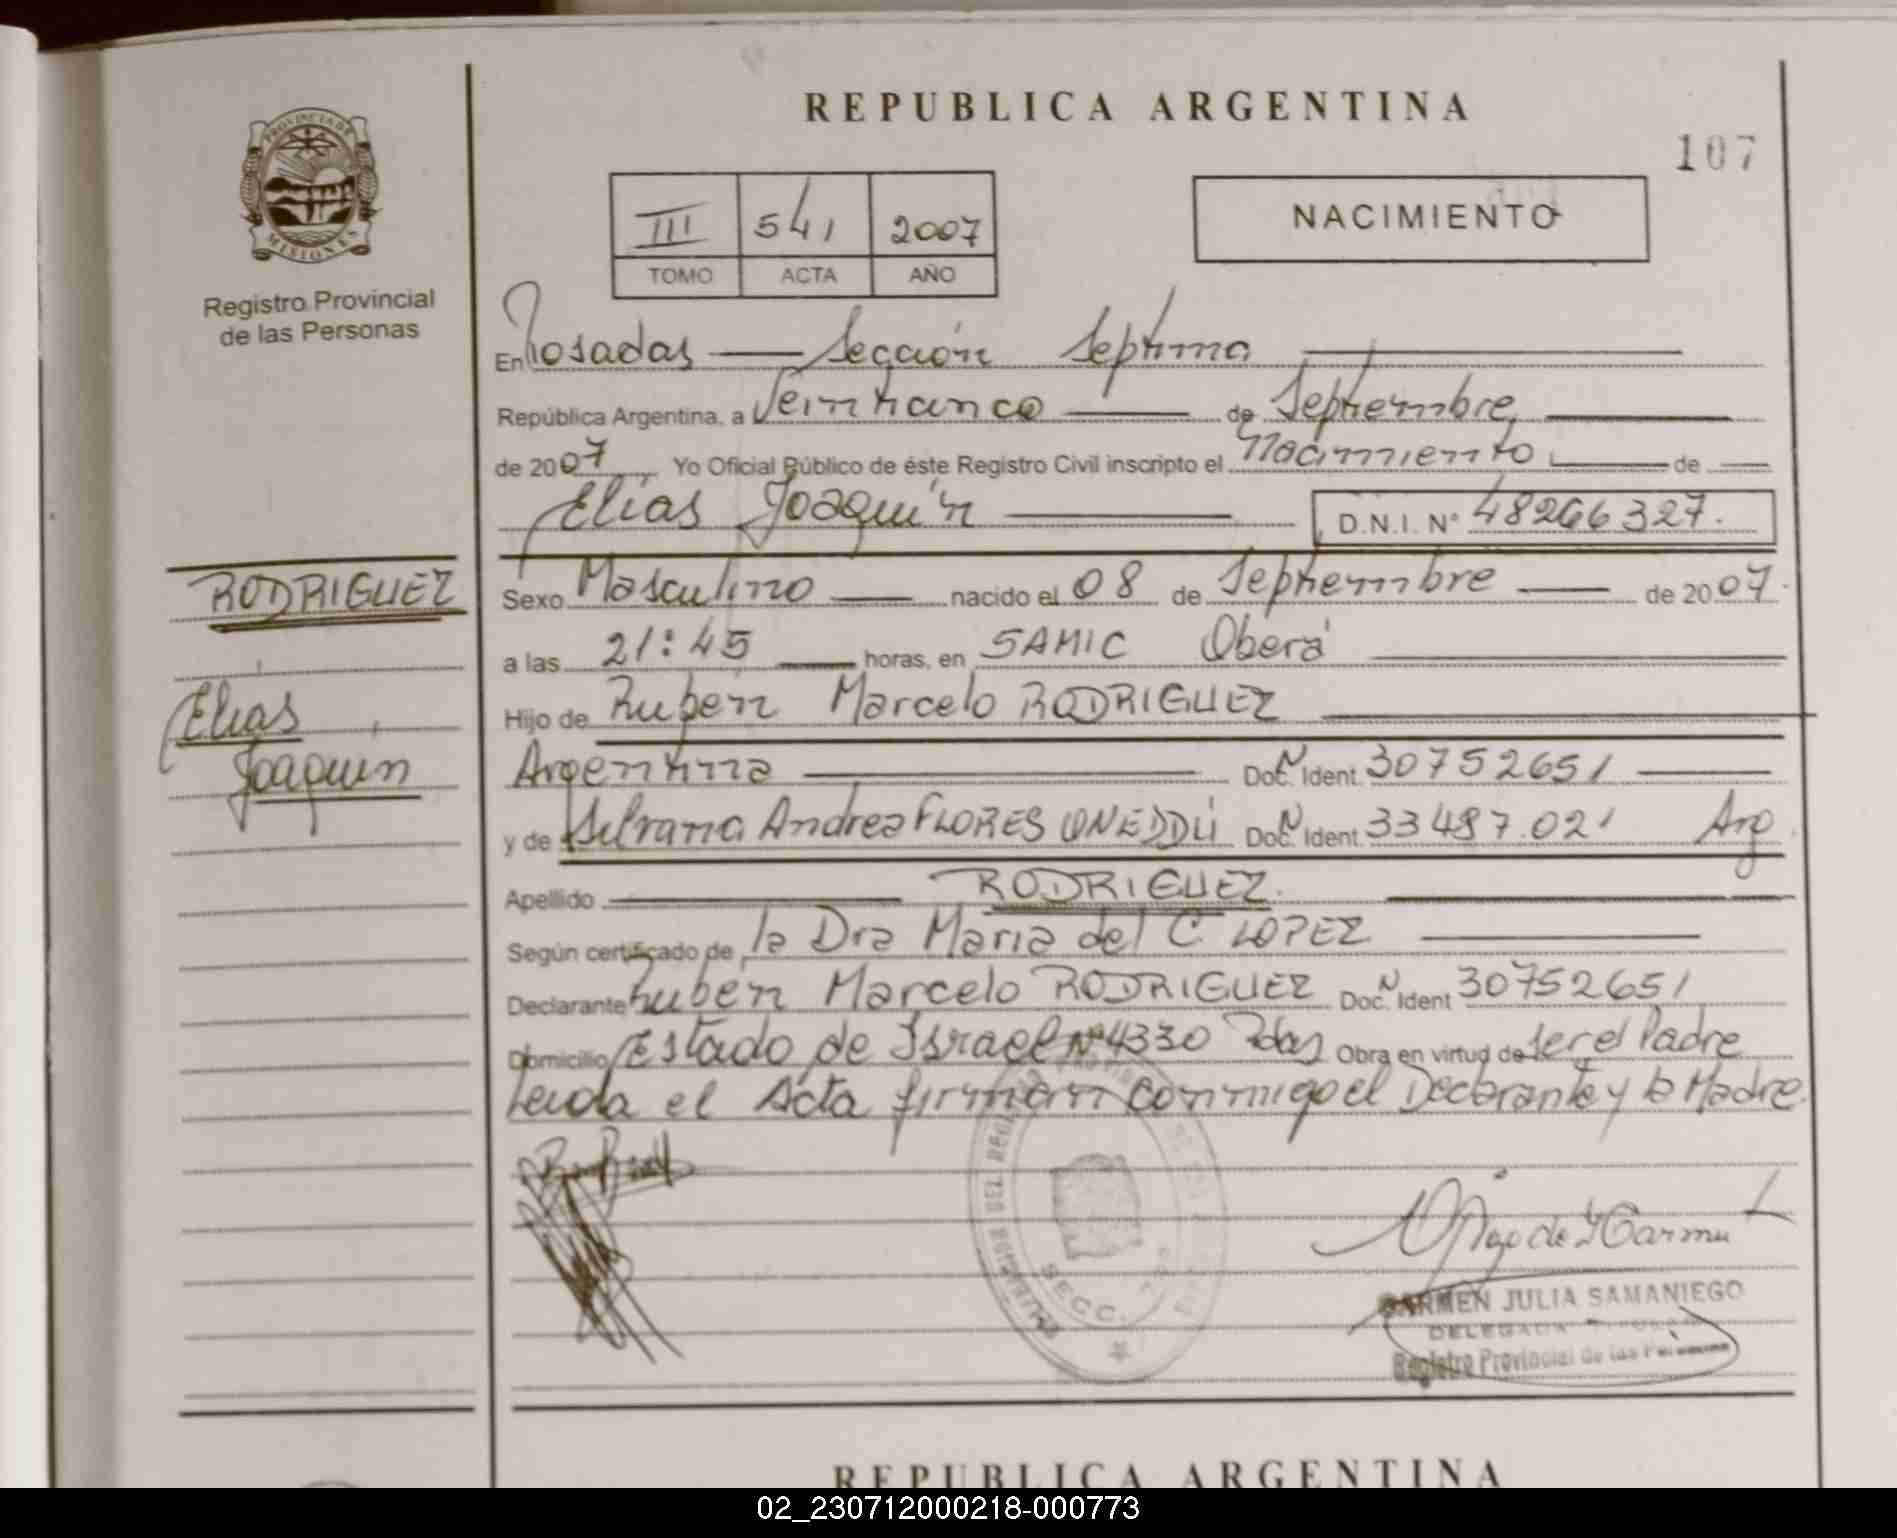 REPUBLICA ARGENTINA
107
PROVINCIA DE
MISIONES
Registro Provincial
de las Personas
III 541 2007
TOMO ACTA AÑO
NACIMIENTO
En Posadas — Sección Septima
República Argentina, a Veinticinco de Septiembre
de 2007 Yo Oficial Público de éste Registro Civil inscripto el Nacimiento de
Elías Joaquín D.N.I. N° 48266327.
RODRIGUEZ
Elias
Joaquin
Sexo Masculino nacido el 08 de Septiembre de 2007.
a las 21:45 horas, en SAMIC Oberá
Hijo de Ruben Marcelo RODRIGUEZ
Argentina Doc. N Ident. 30752651
y de Silvana Andrea FLORES ONEDDU Doc. N Ident. 33487.021 Arg.
Apellido RODRIGUEZ.
Según certificado de la Dra Maria del C. LOPEZ
Declarante Ruben Marcelo RODRIGUEZ Doc. N Ident 30752651
Domicilio Estado de Israel N° 4330 Pdas Obra en virtud de ser el Padre
Leida el Acta firman conmigo el Declarante y la Madre.
SECC. 7
CARMEN JULIA SAMANIEGO
DELEGADA TITULAR
Registro Provincial de las Personas
REPUBLICA ARGENTINA
02_230712000218-000773